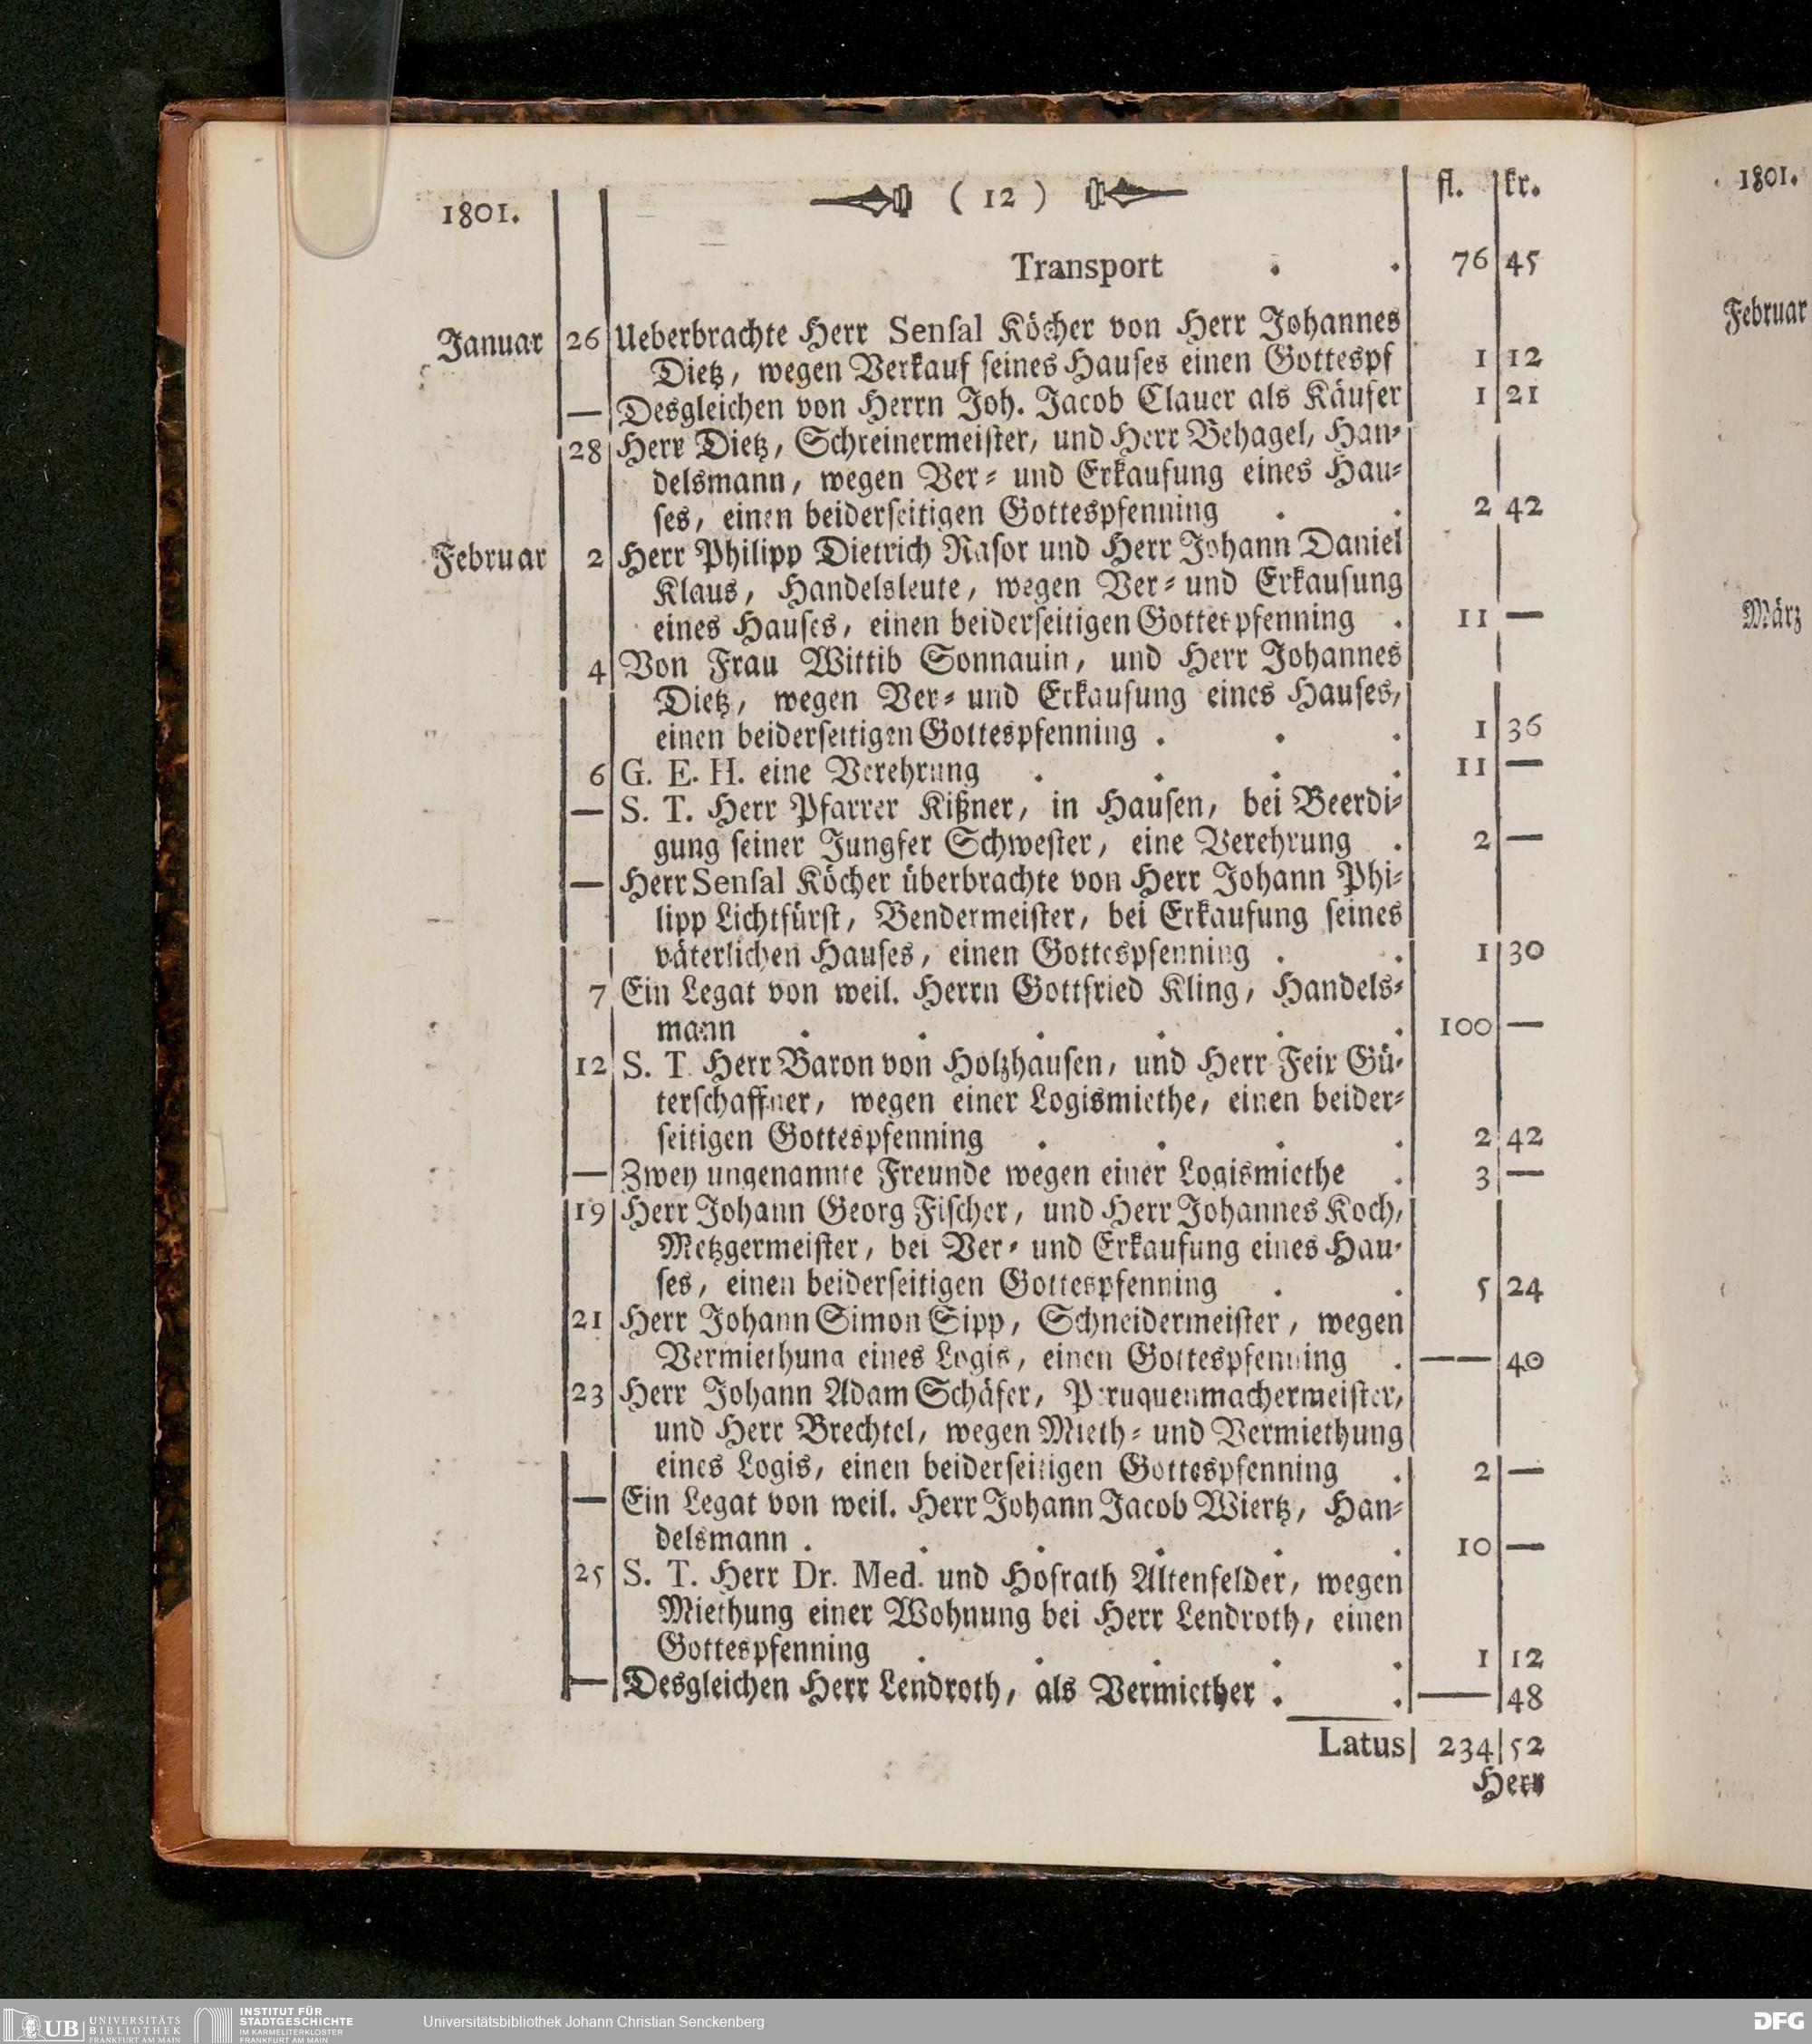 1801. ( 12 ) fl. kr.
Transport . . 76 45
Januar 26 Ueberbrachte Herr Senſal Köcher von Herr Johannes
Dietz, wegen Verkauf ſeines Hauſes einen Gottespf 1 12
— Desgleichen von Herrn Joh. Jacob Clauer als Käufer 1 21
28 Herr Dietz, Schreinermeiſter, und Herr Behagel, Han-
delsmann, wegen Ver- und Erkaufung eines Hau-
ſes, einen beiderſeitigen Gottespfenning . . 2 42
Februar 2 Herr Philipp Dietrich Raſor und Herr Johann Daniel
Klaus, Handelsleute, wegen Ver- und Erkaufung
eines Hauſes, einen beiderſeitigen Gottespfenning . 11 —
4 Von Frau Wittib Sonnauin, und Herr Johannes
Dietz, wegen Ver- und Erkaufung eines Hauſes,
einen beiderſeitigen Gottespfenning . . . 1 36
6 G. E. H. eine Verehrung . . . . 11 —
— S. T. Herr Pfarrer Kißner, in Hauſen, bei Beerdi-
gung ſeiner Jungfer Schweſter, eine Verehrung . 2 —
— Herr Senſal Köcher überbrachte von Herr Johann Phi-
lipp Lichtfürſt, Bendermeiſter, bei Erkaufung ſeines
väterlichen Hauſes, einen Gottespfenning . . 1 30
7 Ein Legat von weil. Herrn Gottfried Kling, Handels-
mann . . . . . . 100 —
12 S. T. Herr Baron von Holzhauſen, und Herr Feir Gü-
terſchaffner, wegen einer Logismiethe, einen beider-
ſeitigen Gottespfenning . . . . 2 42
— Zwey ungenannte Freunde wegen einer Logismiethe . 3 —
19 Herr Johann Georg Fiſcher, und Herr Johannes Koch,
Metzgermeiſter, bei Ver- und Erkaufung eines Hau-
ſes, einen beiderſeitigen Gottespfenning . . 5 24
21 Herr Johann Simon Sipp, Schneidermeiſter, wegen
Vermiethung eines Logis, einen Gottespfenning . —— 40
23 Herr Johann Adam Schäfer, Peruquenmachermeiſter,
und Herr Brechtel, wegen Mieth- und Vermiethung
eines Logis, einen beiderſeitigen Gottespfenning . 2 —
— Ein Legat von weil. Herr Johann Jacob Wiertz, Han-
delsmann . . . . . . 10 —
25 S. T. Herr Dr. Med. und Hofrath Altenfelder, wegen
Miethung einer Wohnung bei Herr Lendroth, einen
Gottespfenning . . . . . 1 12
— Desgleichen Herr Lendroth, als Vermiether . . —— 48
Latus 234 52
Herr
1801.
Februar
März
UB UNIVERSITÄTS
BIBLIOTHEK
FRANKFURT AM MAIN
INSTITUT FÜR
STADTGESCHICHTE
IM KARMELITERKLOSTER
FRANKFURT AM MAIN
Universitätsbibliothek Johann Christian Senckenberg
DFG